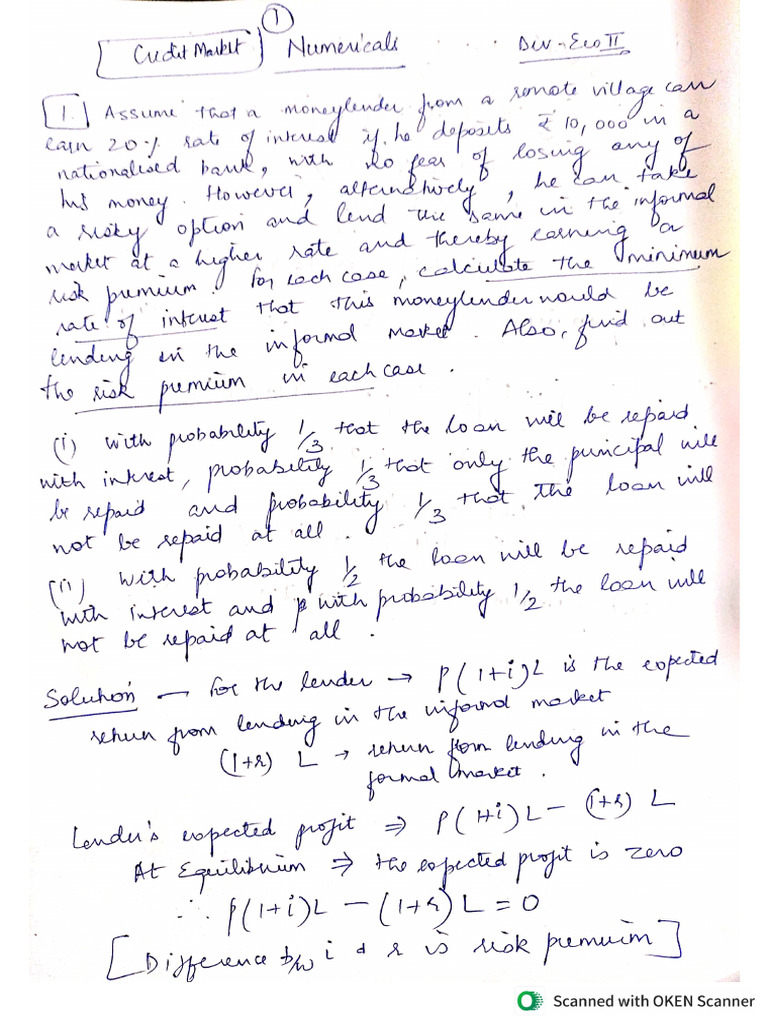 ①
Credit Market Numericals Dev-Eco II
1. Assume that a moneylender from a remote village can
earn 20% rate of interest if he deposits ₹10,000 in a
nationalised bank, with no fear of losing any of
his money. However, alternatively, he can take
a risky option and lend the same in the informal
market at a higher rate and thereby earning a
risk premium. For each case, calculate the minimum
rate of interest that this moneylender would be
lending in the informal market. Also, find out
the risk premium in each case.
(i) With probability 1/3 that the loan will be repaid
with interest, probability 1/3 that only the principal will
be repaid and probability 1/3 that the loan will
not be repaid at all.
(ii) With probability 1/2 the loan will be repaid
with interest and with probability 1/2 the loan will
not be repaid at all.
Solution — For the lender → P(1+i)L is the expected
return from lending in the informal market
(1+r) L → return from lending in the
formal market.
Lender's expected profit ⇒ P(1+i)L - (1+r) L
At Equilibrium ⇒ the expected profit is zero
∴ P(1+i)L - (1+r)L = 0
[Difference b/w i & r is risk premium]
Scanned with OKEN Scanner